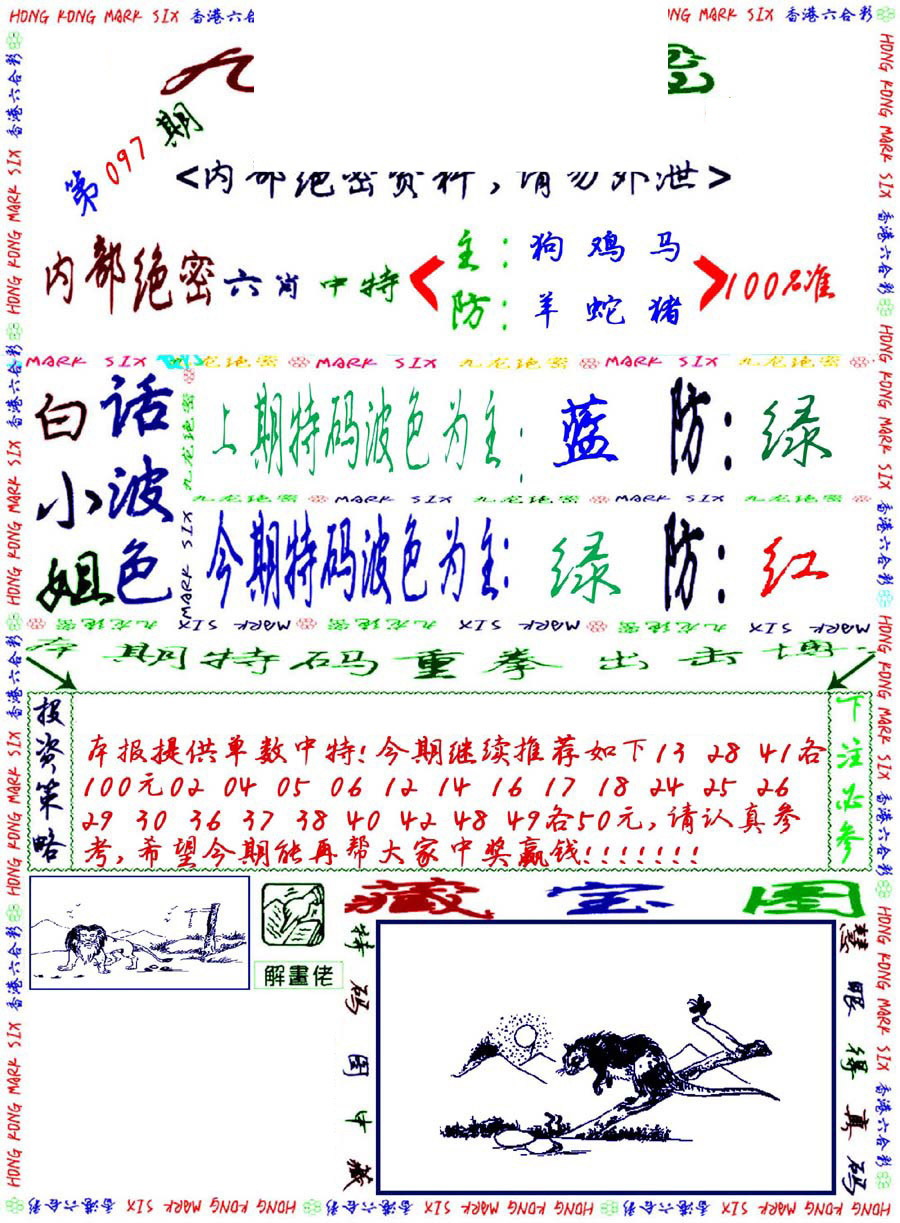 HONG KONG MARK SIX 香港六合彩
第097期
<内部绝密资料，请勿外泄>
内部绝密六肖中特
主：狗 鸡 马
防：羊 蛇 猪
100%准
MARK SIX 九龙绝密 MARK SIX 九龙绝密 MARK SIX 九龙绝密
白话
小波
姐色
上期特码波色为主：蓝 防：绿
九龙绝密 MARK SIX 九龙绝密 MARK SIX 九龙绝密
今期特码波色为主：绿 防：红
本期特码重拳出击博
投资策略
本报提供单数中特!今期继续推荐如下13 28 41各
100元02 04 05 06 12 14 16 17 18 24 25 26
29 30 36 37 38 40 42 48 49各50元,请认真参
考,希望今期能再帮大家中奖赢钱!!!!!!!
下注必参
藏宝图
解畫佬
特码图中藏
慧眼得真码